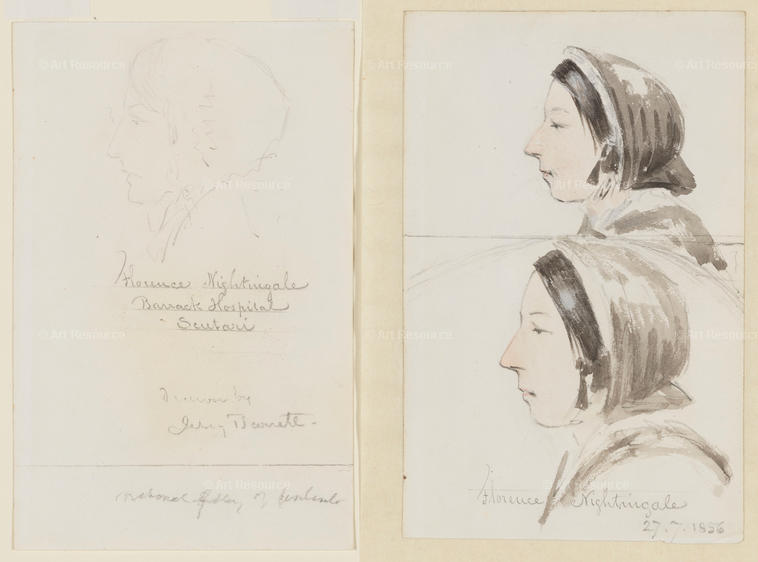 Florence Nightingale
Barrack Hospital
Scutari
Drawn by
Jerry Barrett -
National Gallery of
Florence Nightingale
27.7.1856
© Art Resource
© Art Resource
© Art Resource
© Art Resource
© Art Resource
© Art Resource
© Art Resource
© Art Resource
© Art Resource
© Art Resource
© Art Resource
© Art Resource